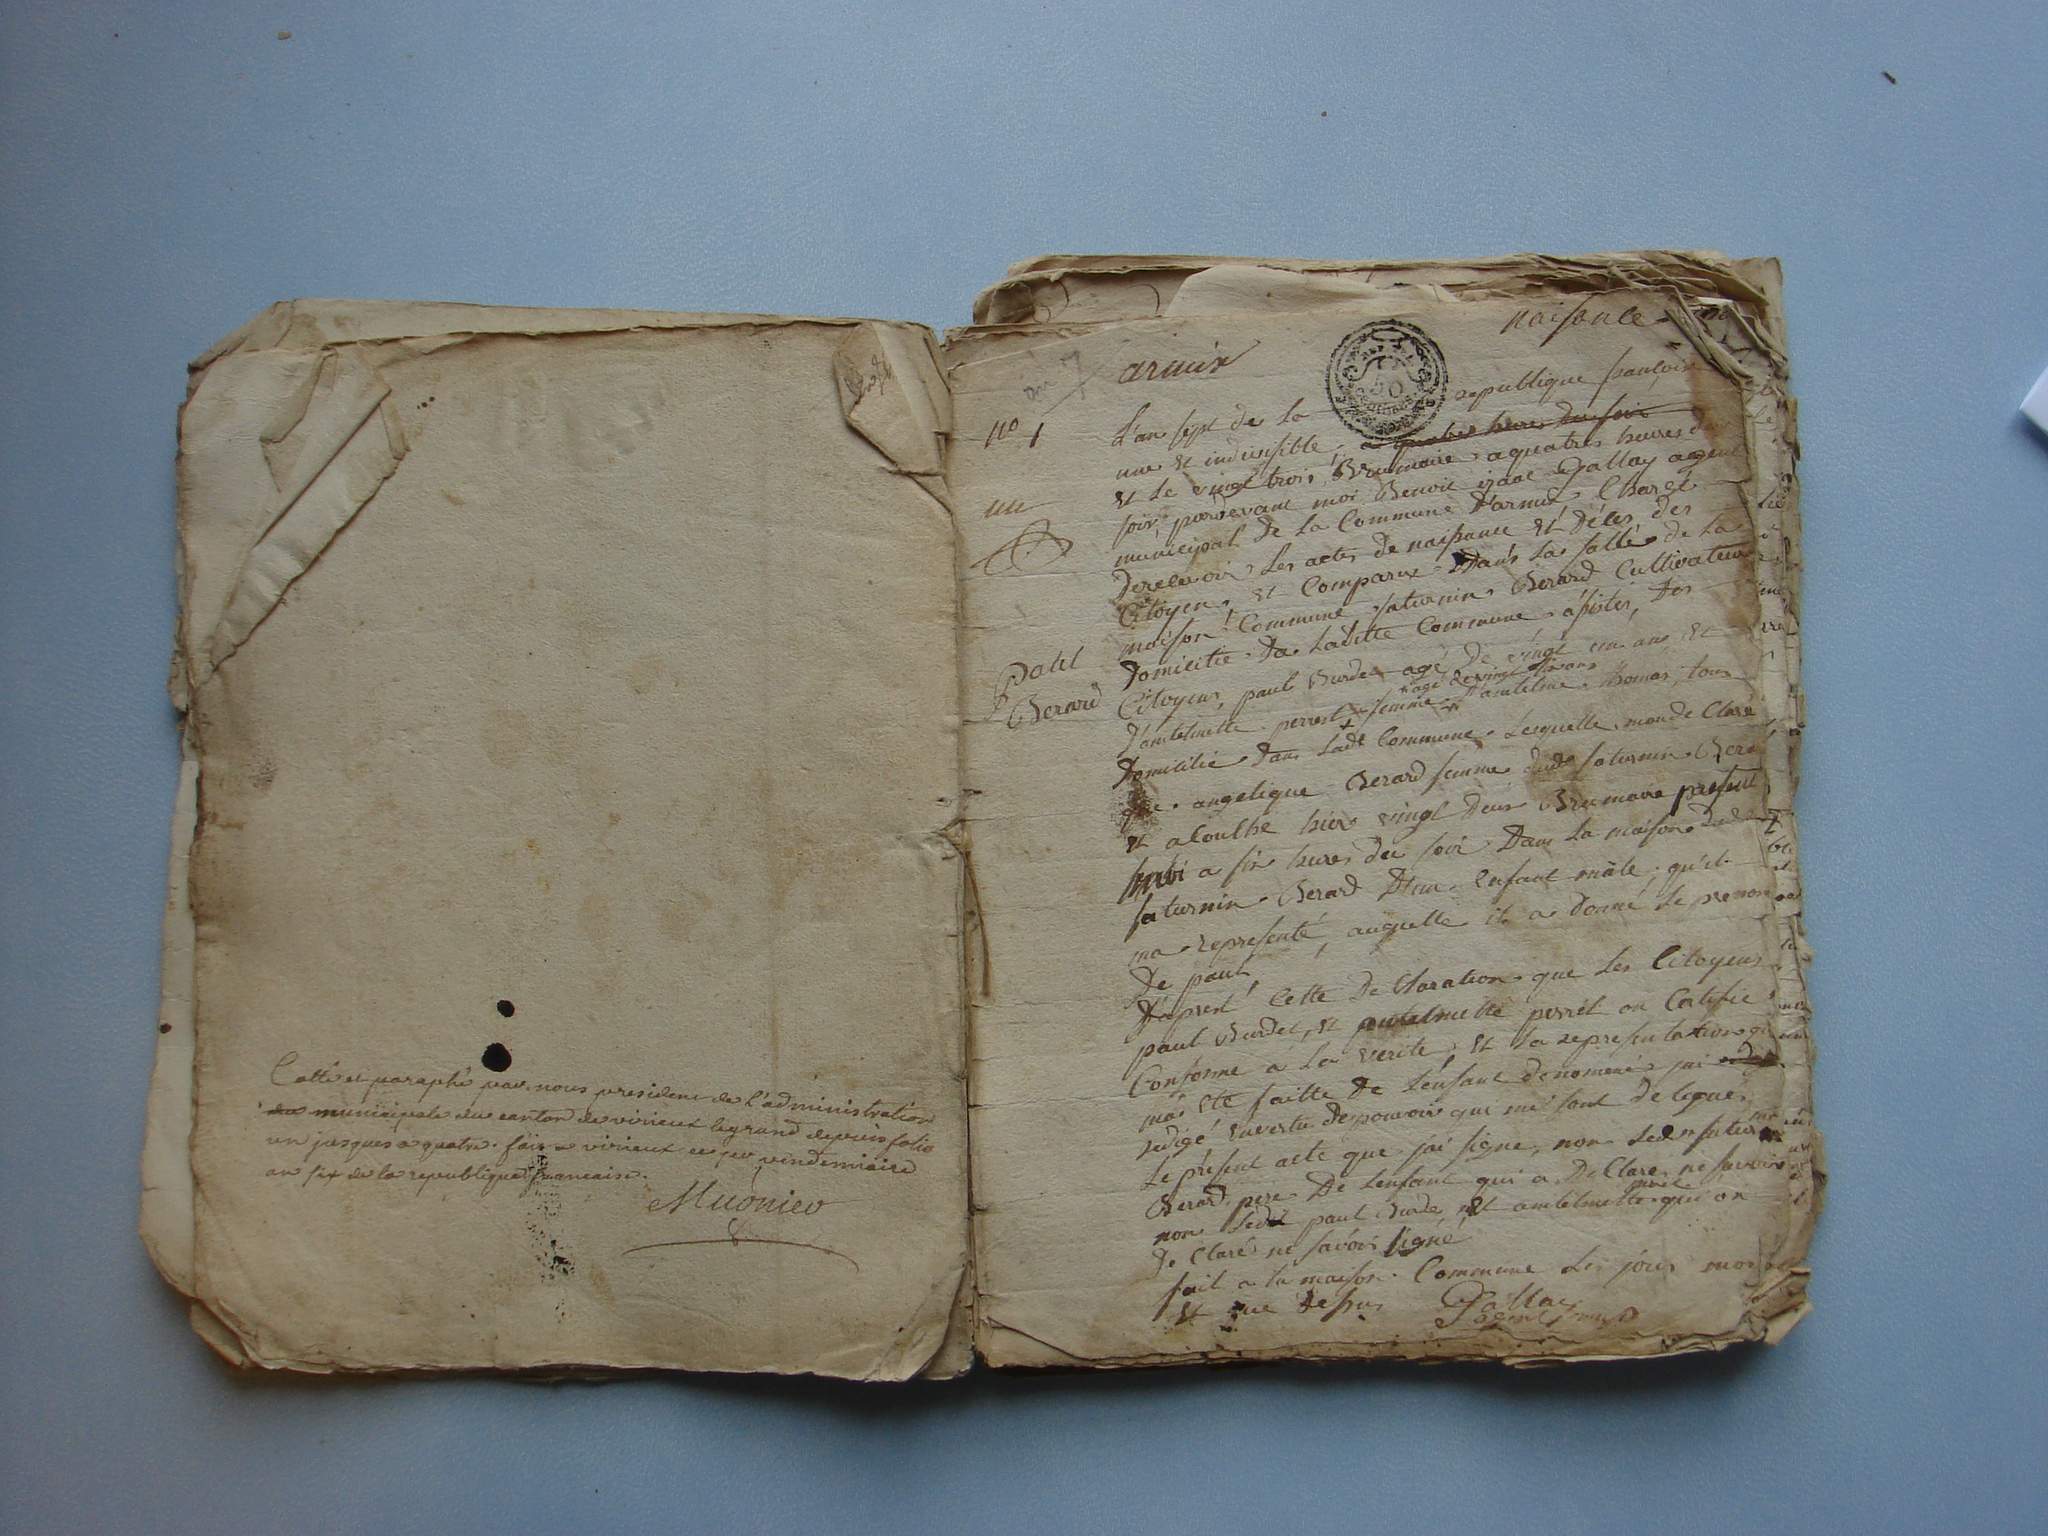 Cotté et paraphé par nous president de l'administration
du municipale du canton de virieux le grand depuis folio
un jusques a quatre. fait a virieux ce per vendemiaire
an six de la republique francaise.
Mugnier
an 7
armix
naissance
50
No 1
un
L'an sept de la republique francoise
une et indivisible, a quatres heures du soir
et le vingt trois Brumaire a quatres heures du
soir pardevant moi Benoit izaac Pallay agent
municipal de la Commune D'armix Chargé
De recevoir Les actes de naissance et Déces des
Citoyens, et Comparux Dans La sallé de La
maison Commune saturnin Berard Cultivateur
Domicilié Da Laditte Commune assister, Des
Patel
Berard
Citoyens, paul Burdet agé De vingt un ans et
agé de vingt trois ans
D'antelmette perret femme D'antelme thomas, tous
Domicilié Dans Ladt Commune Lesquelle mon de Claré
que angelique Berard femme dud saturnin Berard
et acouthé hier vingt Deux Brumaire present
mois a six heures du soir Dans La maison dud
saturnin Berard D'un Enfant mâle qu'il
ma representé, auquelle il a Donné Le prenom
De paul
D'apres Cette De Claration que Les Citoyens
paul Burdet, et antelmette perrét on Certifié
Conforme a La verité, et La representation qui
ma été faitte De L'enfant denomené jai
redigé Envertu Des pouvoir qui me sont Delegués
Le présent acte que j'ai signé, non Ledt saturnin
Berard pere De L'enfant qui a De Claré ne savoir
perret
non Ledit paul Burdet et antelmette qui on
De Claré ne savoir signé
fait a la maison Commune Les jours mois
et ans Dessus Pallay
agent mupl